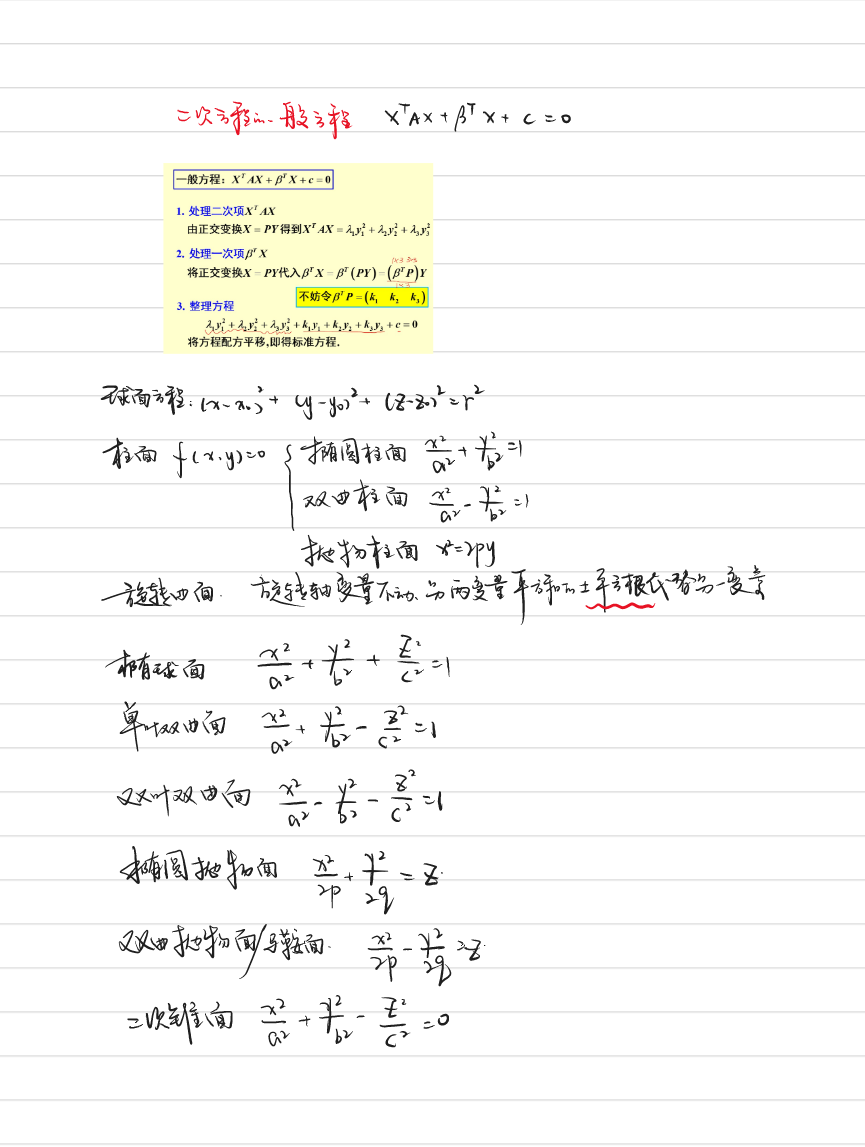 二次方程的一般方程 XᵀAX + βᵀX + c = 0
一般方程：XᵀAX + βᵀX + c = 0
1. 处理二次项XᵀAX
由正交变换X = PY得到XᵀAX = λ₁y₁² + λ₂y₂² + λ₃y₃²
2. 处理一次项βᵀX
1×3 3×3
将正交变换X = PY代入βᵀX = βᵀ(PY) = (βᵀP)Y
1×3
不妨令βᵀP = (k₁ k₂ k₃)
3. 整理方程
λ₁y₁² + λ₂y₂² + λ₃y₃² + k₁y₁ + k₂y₂ + k₃y₃ + c = 0
将方程配方平移,即得标准方程.
球面方程: (x-x₀)² + (y-y₀)² + (z-z₀)² = r²
柱面 f(x,y)=0 { 椭圆柱面 x²/a² + y²/b² = 1
双曲柱面 x²/a² - y²/b² = 1
抛物柱面 x²=2py
旋转曲面. 旋转轴变量不动. 另两变量平方和的±平方根代替另一变量
椭球面 x²/a² + y²/b² + z²/c² = 1
单叶双曲面 x²/a² + y²/b² - z²/c² = 1
双叶双曲面 x²/a² - y²/b² - z²/c² = 1
椭圆抛物面 x²/2p + y²/2q = z
双曲抛物面/马鞍面. x²/2p - y²/2q = z
二次锥面 x²/a² + y²/b² - z²/c² = 0